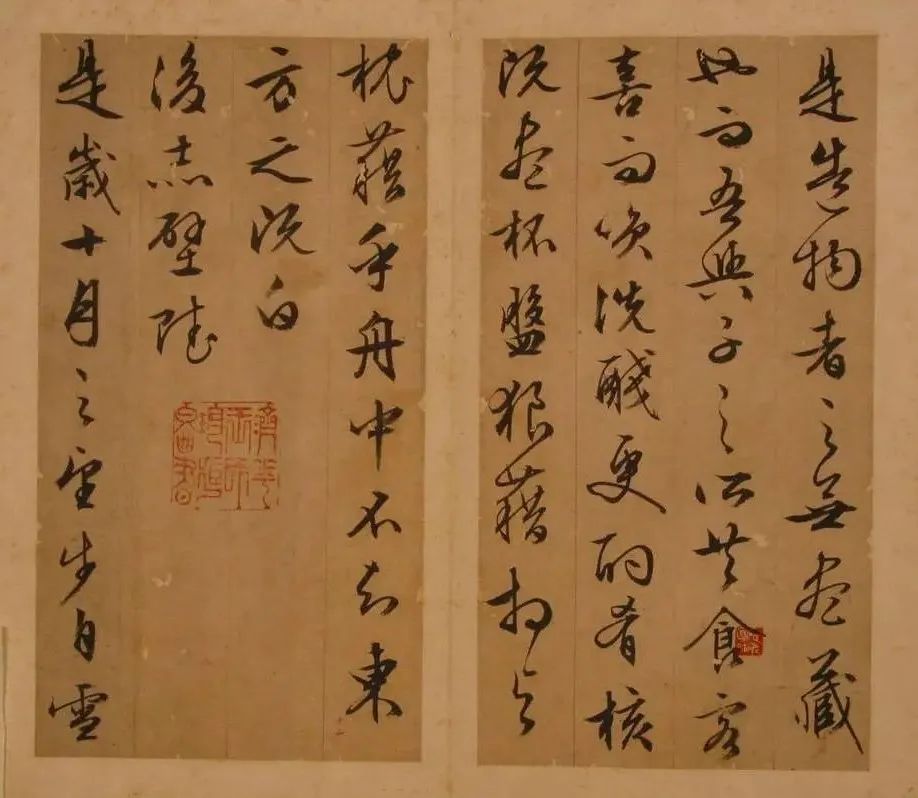 是造物者之無盡藏
也而吾與子之所共食客
喜而咲洗醆更酌肴核
既盡杯盤狼藉相與
枕藉乎舟中不知東
方之既白
後赤壁賦
是歲十月之望步自雪